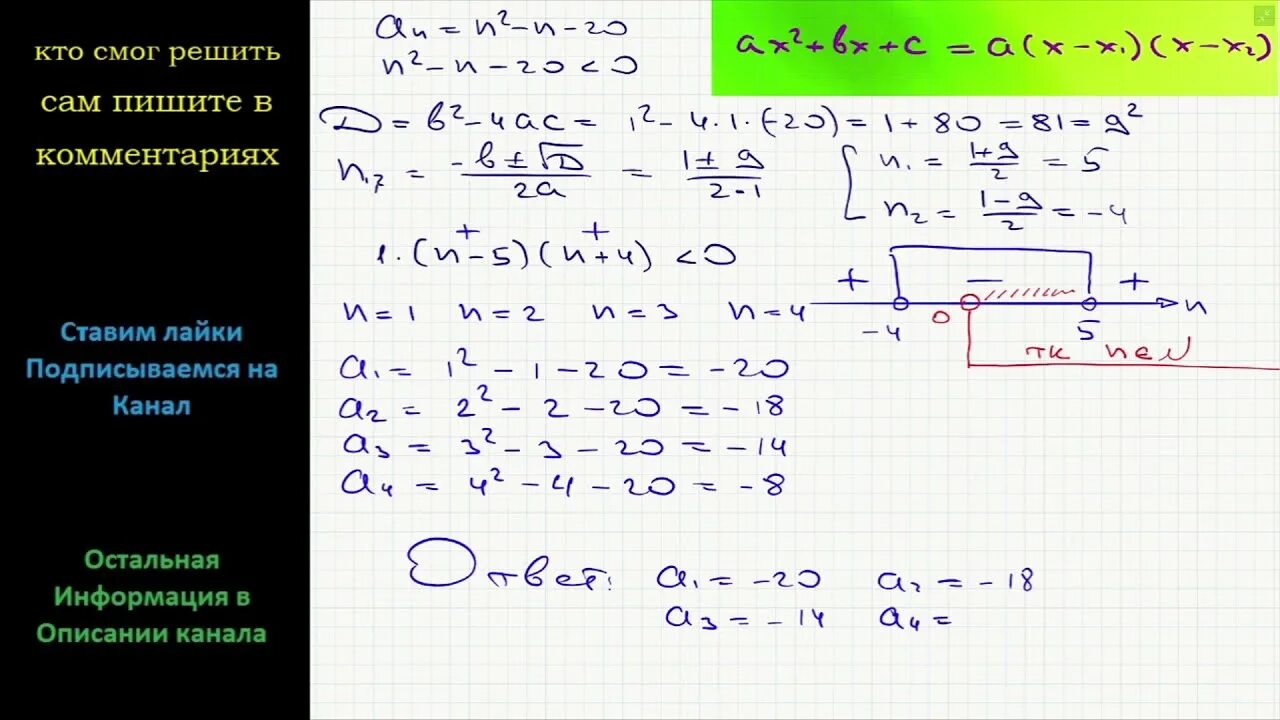 кто смог решить
сам пишите в
комментариях
Ставим лайки
Подписываемся на
Канал
Остальная
Информация в
Описании канала
ax²+bx+c = a(x-x₁)(x-x₂)
aₙ = n²-n-20
n²-n-20<0
D = b²-4ac = 1²-4·1·(-20) = 1+80 = 81 = 9²
n₁,₂ = (-b±√D)/(2a) = (1±9)/(2·1)
n₁ = (1+9)/2 = 5
n₂ = (1-9)/2 = -4
+ +
1·(n-5)(n+4)<0
+ — +
-4 0 5 n
тк n∈N
n=1 n=2 n=3 n=4
a₁ = 1²-1-20 = -20
a₂ = 2²-2-20 = -18
a₃ = 3²-3-20 = -14
a₄ = 4²-4-20 = -8
Ответ: a₁ = -20 a₂ = -18
a₃ = -14 a₄ =